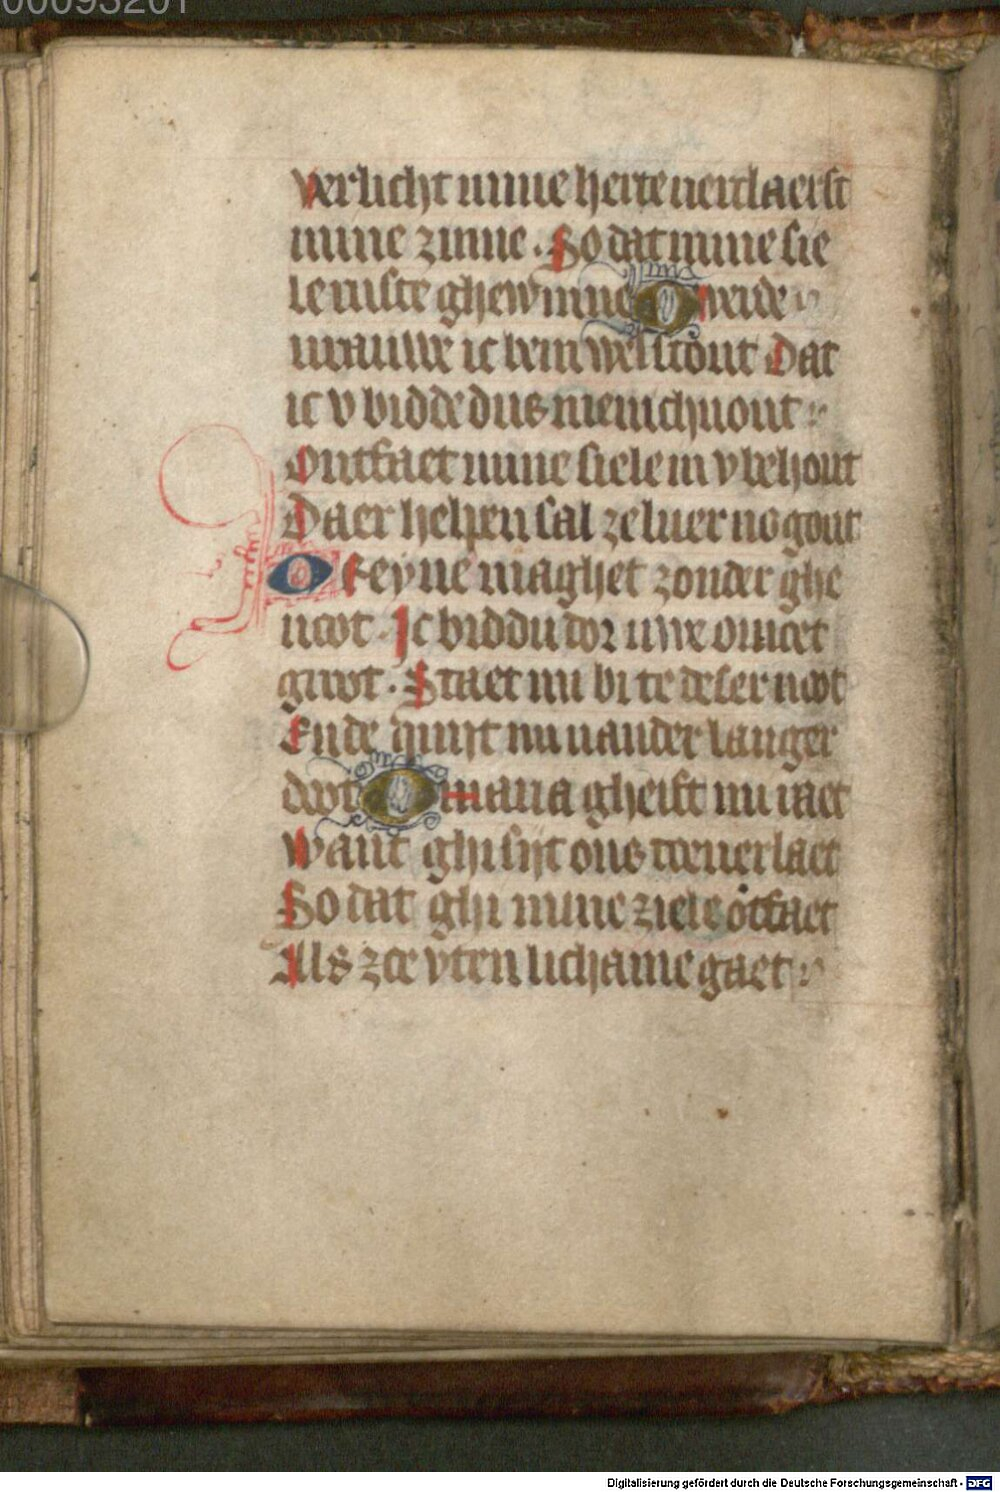 00093201
verlicht mine herte verclaerst
mine zinne. So dat mine sie
le ruste ghewinne O werde
vrauwe ic bem wel stout Dat
ic v bidde dus menichuout
Ontfaet mine siele in v behout
Daer helpen sal zeluer no gout
O Reyne maghet zonder ghe
noot. Ic biddu dor uwe omoet
groot. Staet mi bi te deser noot
Ende quijt mi vander langer
doot O maria gheift mi raet
Want ghi sijt ons toeuerlaet
So dat ghi mine ziele ōtfaet
Als zoe vten lichame gaet
Digitalisierung gefördert durch die Deutsche Forschungsgemeinschaft - DFG